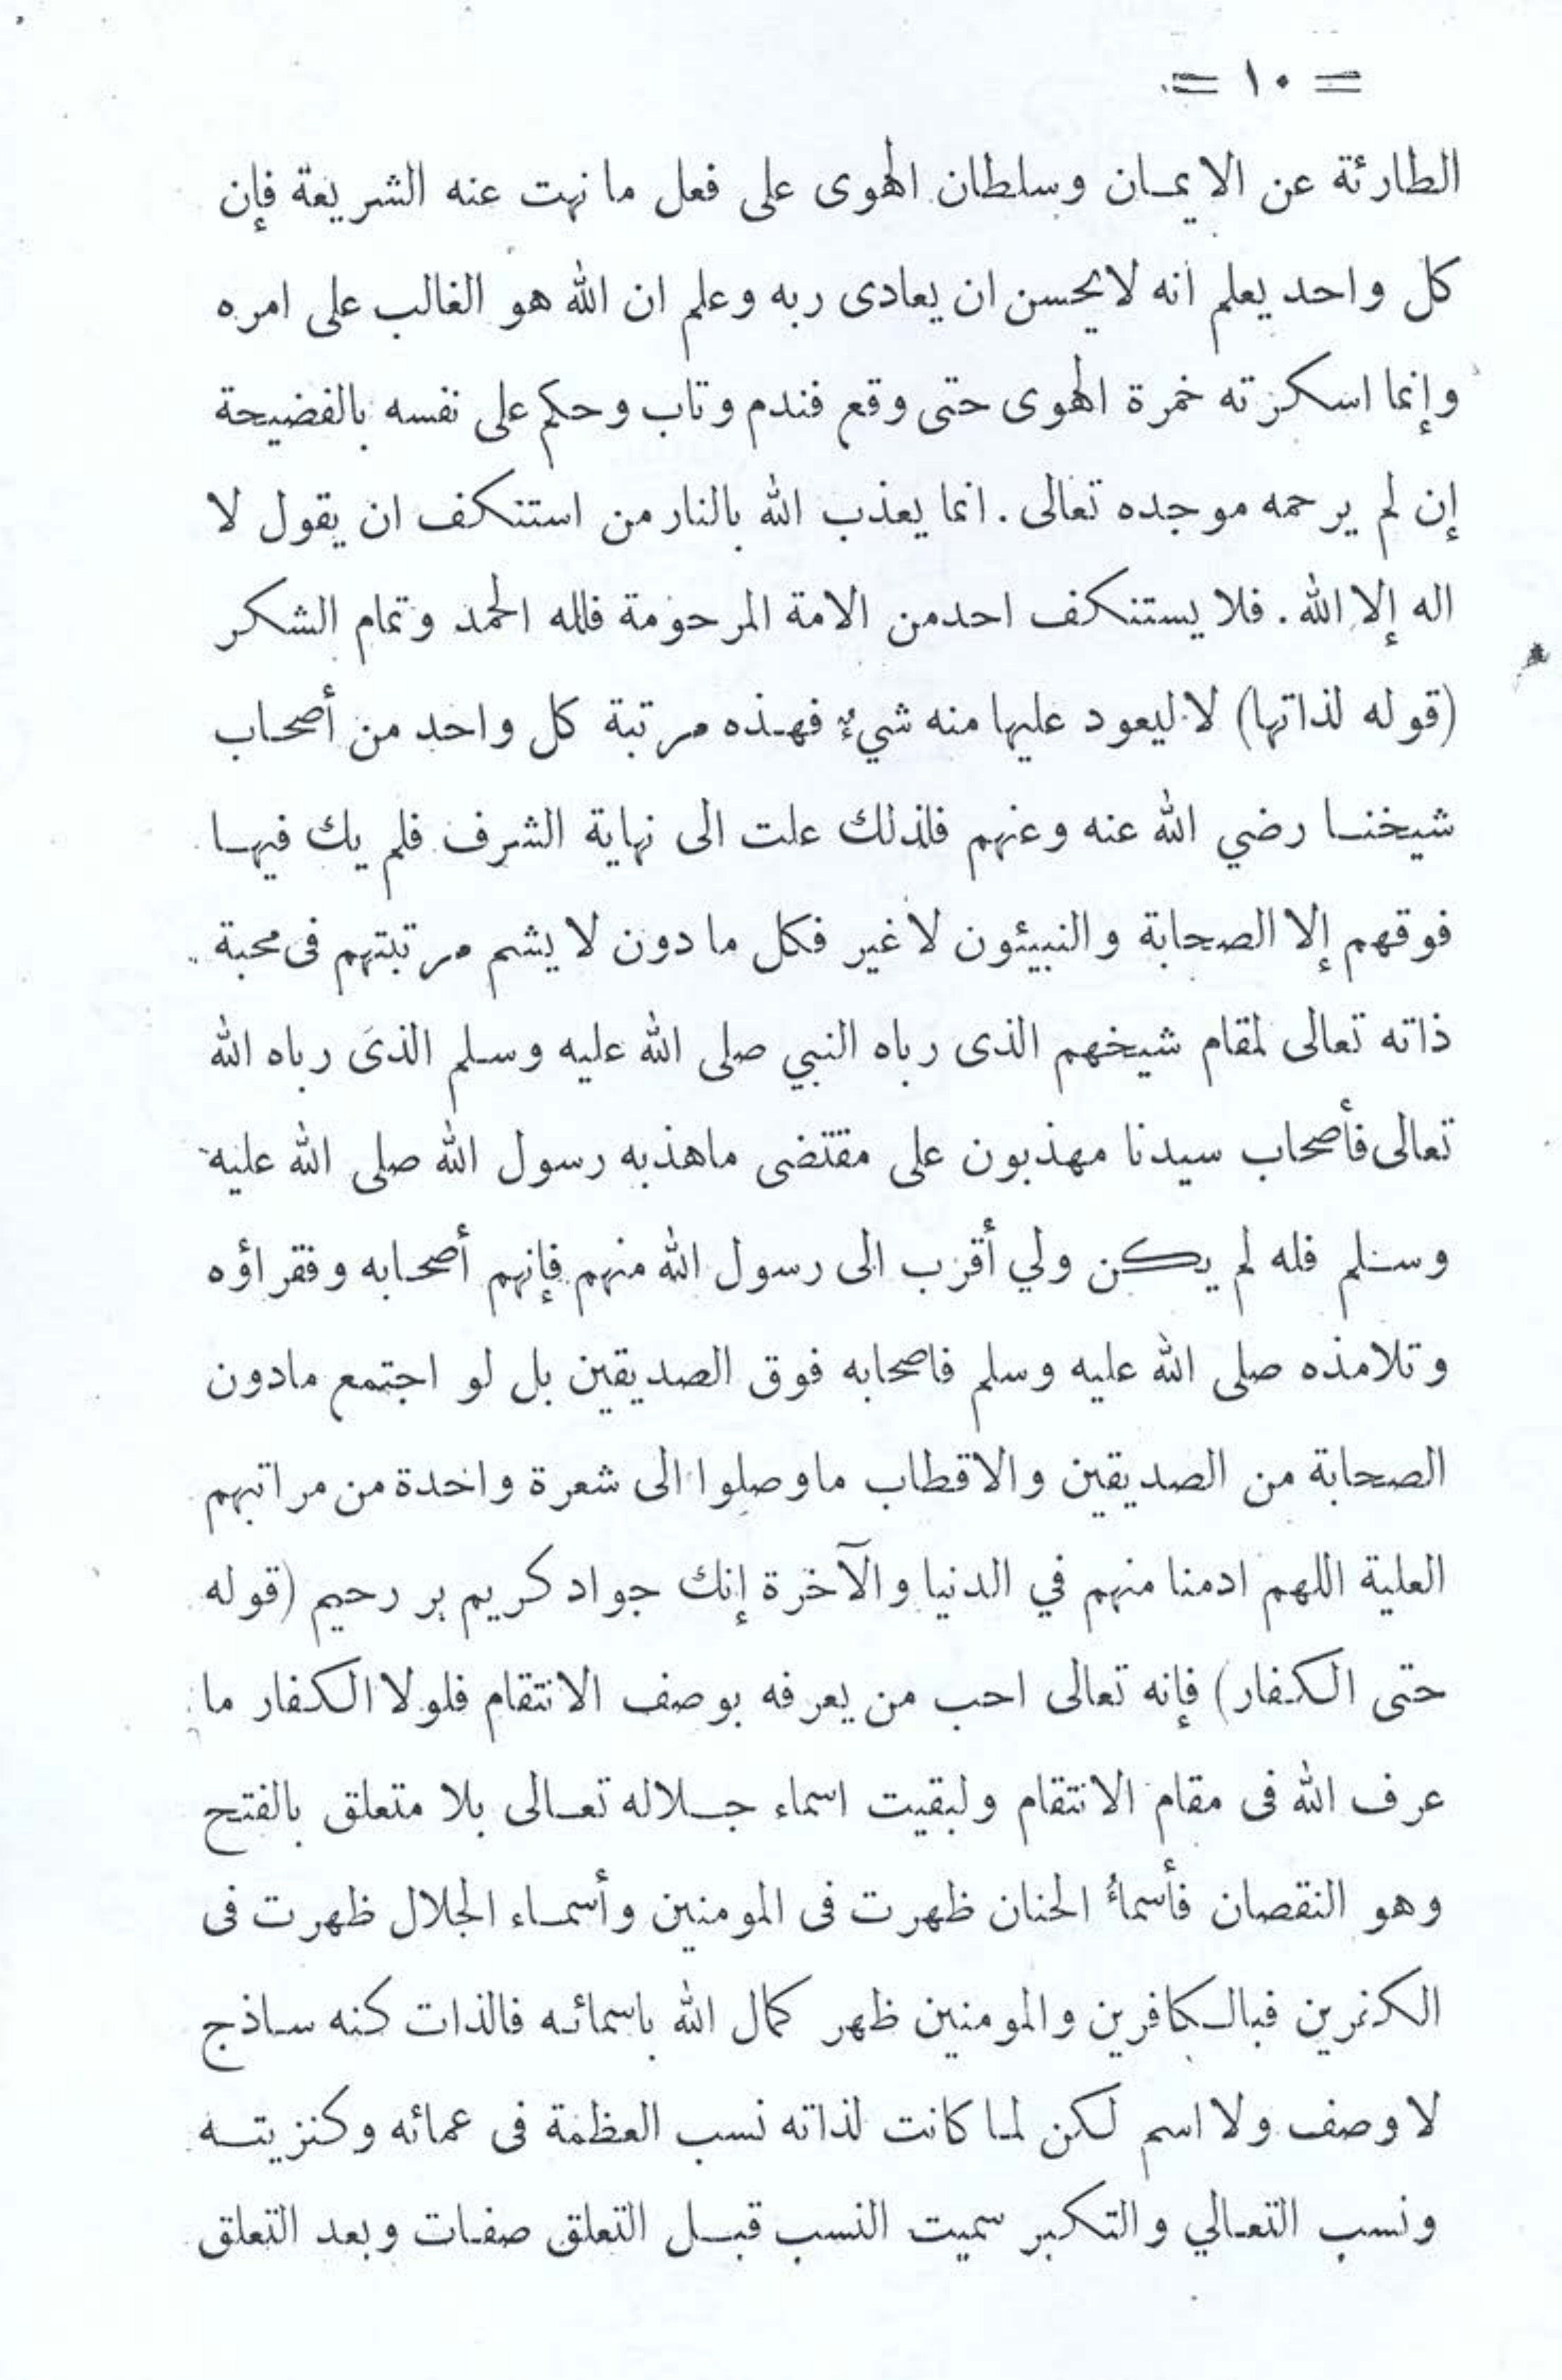 = ١٠ =
الطارئة عن الايمـان وسلطان الهوى على فعل ما نهت عنه الشريعة فإن
كل واحد يعلم انه لا يحسن ان يعادى ربه وعلم ان الله هو الغالب على امره
وإنما اسكرته خمرة الهوى حتى وقع فندم وتاب وحكم على نفسه بالفضيحة
إن لم يرحمه موجده تعالى . انما يعذب الله بالنار من استنكف ان يقول لا
اله إلا الله . فلا يستنكف احد من الامة المرحومة فلله الحمد وتمام الشكر
(قوله لذاتها) لا ليعود عليها منه شيءٌ فهـذه مرتبة كل واحد من أصحـاب
شيخنـا رضي الله عنه وعنهم فلذلك علت الى نهاية الشرف فلم يك فيهـا
فوقهم إلا الصحابة والنبيئون لا غير فكل ما دون لا يشم مرتبتهم فى محبة
ذاته تعالى لمقام شيخهم الذى رباه النبي صلى الله عليه وسلم الذى رباه الله
تعالى فأصحاب سيدنا مهذبون على مقتضى ماهذبه رسول الله صلى الله عليه
وسلم فله لم يكن ولي أقرب الى رسول الله منهم فإنهم أصحـابه وفقراؤه
وتلامذه صلى الله عليه وسلم فاصحابه فوق الصديقين بل لو اجتمع مادون
الصحابة من الصديقين والاقطاب ماوصلوا الى شعرة واحدة من مراتبهم
العلية اللهم ادمنا منهم في الدنيا والآخرة إنك جواد كريم بر رحيم (قوله
حتى الكـفار) فإنه تعالى احب من يعرفه بوصف الانتقام فلولا الكفار ما
عرف الله فى مقام الانتقام ولبقيت اسماء جـلاله تعـالى بلا متعلق بالفتح
وهو النقصان فأسمأُ الحنان ظهرت فى المومنين وأسمـاء الجلال ظهرت فى
فبالـكافرين والمومنين ظهر كمال الله باسمائـه فالذات كنه سـاذج
لا وصف ولا اسم لـكن لمـا كانت لذاته نسب العظمة فى عمائه وكنزيتـه
ونسب التعـالي والتكبر سميت النسب قبـل التعلق صفـات وبعد التعلق